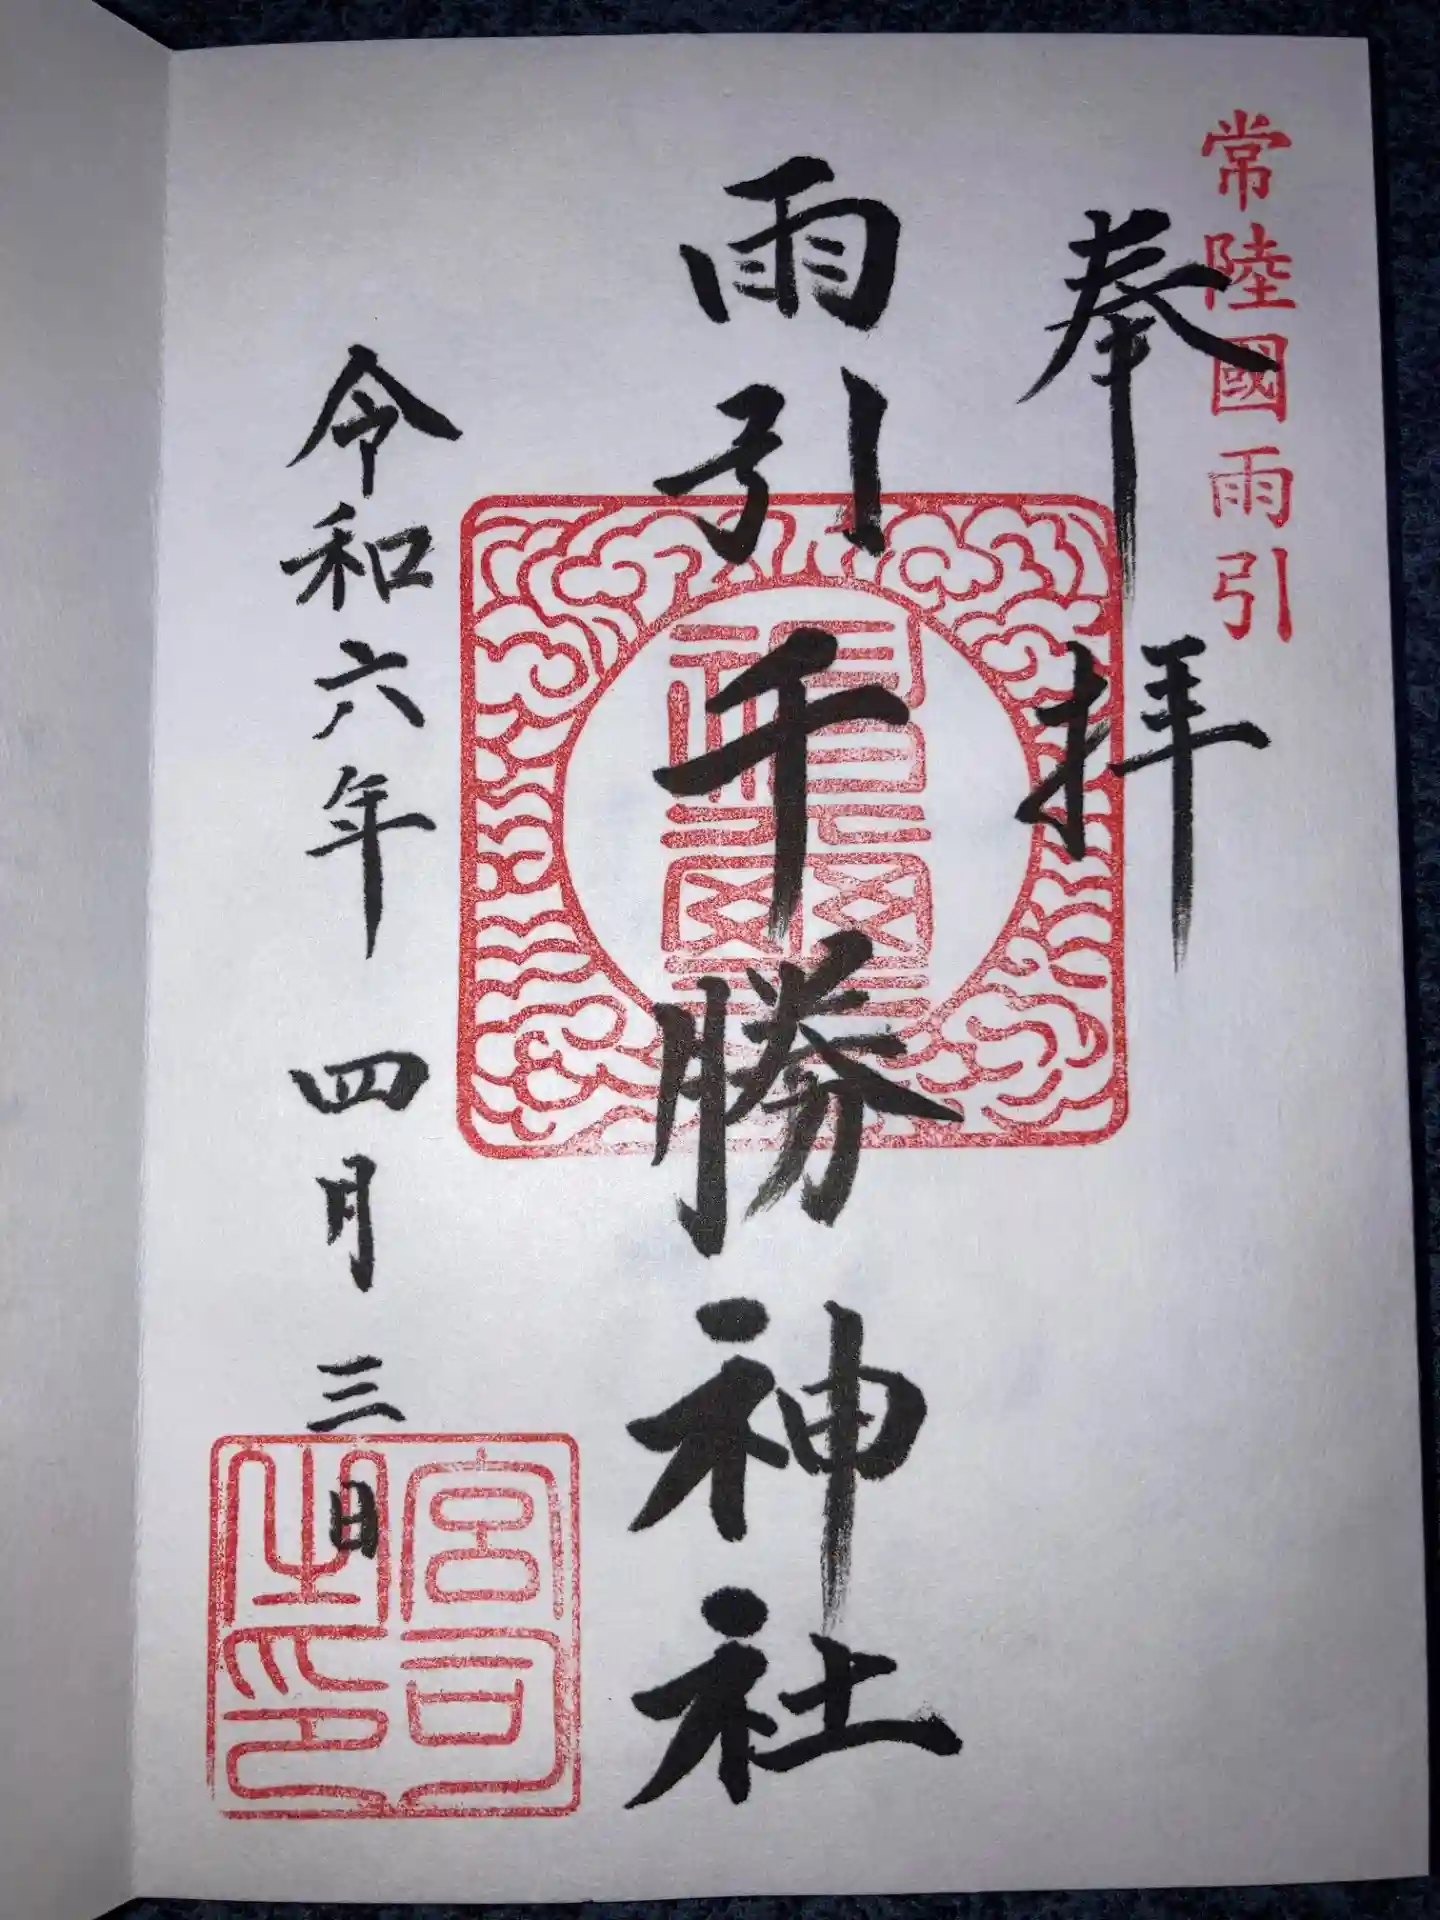 常陸國雨引
奉拝
雨引千勝神社
令和六年 四月 三日
宮司之印